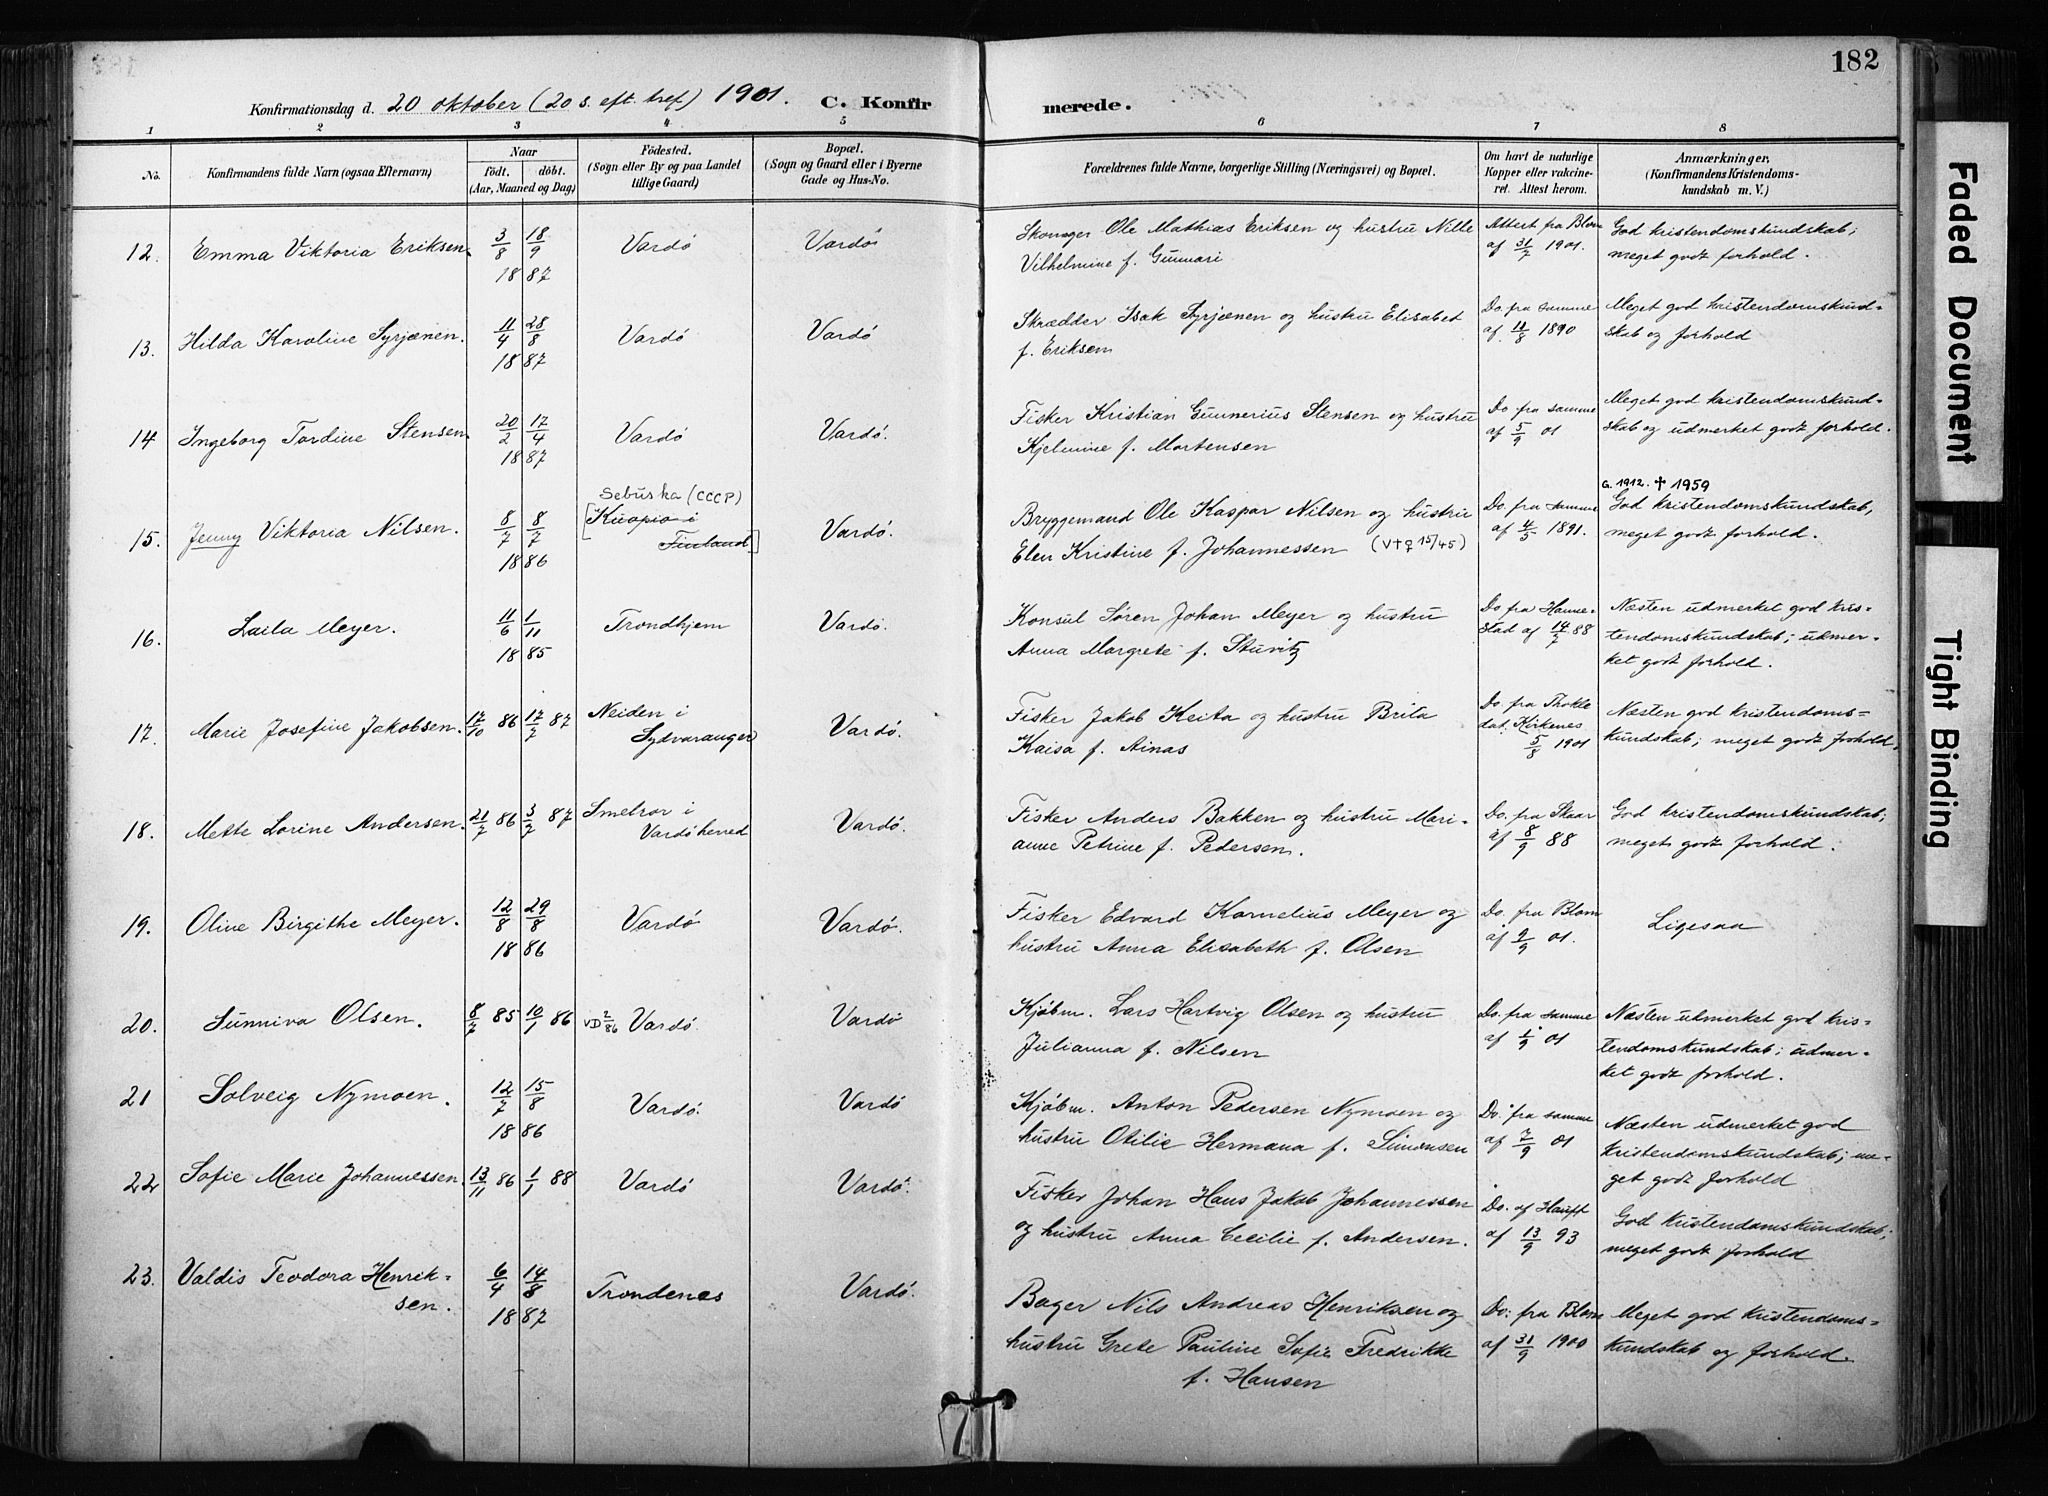 182
Konfirmationsdag d. 20 oktober (20 s. eft. tref.) 1901. C. Konfirmerede.
1 2 3 4 5 6 7 8
No. Konfirmandens fulde Navn (ogsaa Efternavn) Naar födt. döbt. (Aar, Maaned og Dag)
Födested. (Sogn eller By og paa Landet tillige Gaard)
Bopæl. (Sogn og Gaard eller i Byerne Gade og Hus-No.
Forældrenes fulde Navne, borgerlige Stilling (Næringsvei) og Bopæl.
Om havt de naturlige Kopper eller vakcineret. Attest herom.
Anmærkninger, (Konfirmandens Kristendomskundskab m. V.)
12. Emma Viktoria Eriksen. 3/8 18/9 1887 Vardö Vardö
Skomager Ole Mathias Eriksen og hustru Nille
Vilhelmine f. Gunnari
Attest fra Blom
af 31/7 1901.
God kristendomskundskab;
meget godt forhold.
13. Hilda Karoline Syrjænen. 11/4 28/8 1887 Vardö Vardö
Skrædder Isak Syrjænen og hustru Elisabet
f. Eriksen
Do. fra samme
af 11/8 1890
Meget god kristendomskund-
skab og forhold
14 Ingeborg Tordine Stensen. 20/2 17/4 1887 Vardö Vardö.
Fisker Kristian Gunnerius Stensen og hustru
Kjelmine f. Mortensen
Do fra samme
af 5/9 01
Meget god kristendomskund-
skab og udmerket godt forhold.
15. Jenny Viktoria Nilsen. 8/7 8/7 1886
Sebuska (CCCP)
[Kuopio i
Finland]
Vardö.
Bryggemand Ole Kaspar Nilsen og hustru
Elen Kristine f. Johannessen (V+♀ 15/45)
Do. fra samme
af 4/5 1891.
G. 1912. ✝ 1959
God kristendomskundskab,
meget godt forhold.
16. Laila Meyer. 11/6 1/11 1885 Trondhjem Vardö.
Konsul Søren Johan Meyer og hustru
Anna Margrete f. Stuvitz
Do fra Hanne-
stad af 14/7 88
Næsten udmerket god kris-
tendomskundskab; udmer-
ket godt forhold.
17. Marie Josefine Jakobsen. 17/10 86 17/7 87
Neiden i
Sydvaranger
Vardö.
Fisker Jakob Keita og hustru Brita
Kaisa f. Ainas
Do. fra Thokle
dat. Kirkenes
5/8 1901
Næsten god kristendoms-
kundskab; meget godt forhold.
18. Mette Lorine Andersen. 21/7 86 3/7 87
Smelror i
Vardö herred
Vardö.
Fisker Anders Bakken og hustru Mari-
anne Petrine f. Pedersen.
Do. fra Skaar
af 8/9 88
God kristendomskundskab;
meget godt forhold.
19. Oline Birgithe Meyer. 12/8 29/8 1886 Vardö Vardö.
Fisker Edvard Kornelius Meyer og
hustru Anna Elisabeth f. Olsen
Do. fra Blom
af 9/9 01.
Ligesaa
20. Sunniva Olsen. 8/7 85 10/1 86 VD 2/86 Vardö. Vardö
Kjöbm. Lars Hartvig Olsen og hustru
Julianna f. Nilsen
Do. fra samme
af 1/9 01
Næsten udmerket god kris-
tendomskundskab; udmer-
ket godt forhold.
21 Solveig Nymoen. 12/7 15/8 1886 Vardö. Vardö
Kjöbm. Anton Pedersen Nymoen og
hustru Otilie Hermana f. Simonsen
Do. fra samme
af 7/9 01
Næsten udmerket god
kristendomskundskab; me-
get godt forhold
22 Sofie Marie Johannessen. 13/11 86 1/1 88 Vardö Vardö.
Fisker Johan Hans Jakob Johannessen
og hustru Anna Cecilie f. Andersen.
Do. af Hauft
af 13/9 93
God kristendomskundskab;
meget godt forhold
23. Valdis Teodora Henrik-
sen. 6/4 14/8 1887 Trondenes Vardö.
Bager Nils Andreas Henriksen og
hustru Grete Pauline Sofie Fredrikke
f. Hansen
Do. fra Blom
af 31/9 1900
Meget god kristendoms-
kundskab og forhold.
Faded Document
Tight Binding